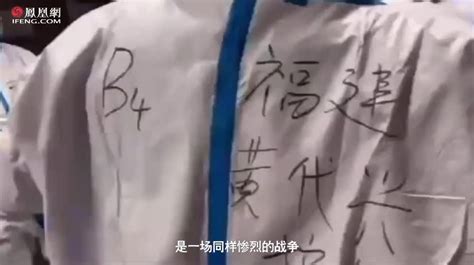 鳳凰網
IFENG.COM
B4 福建
黄代兴
是一场同样惨烈的战争